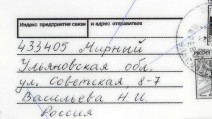 Индекс предприятия связи и адрес отправителя
433405 Мирный
Ульяновская обл.
ул. Советская, 8-7
Васильева Н.И.
Россия